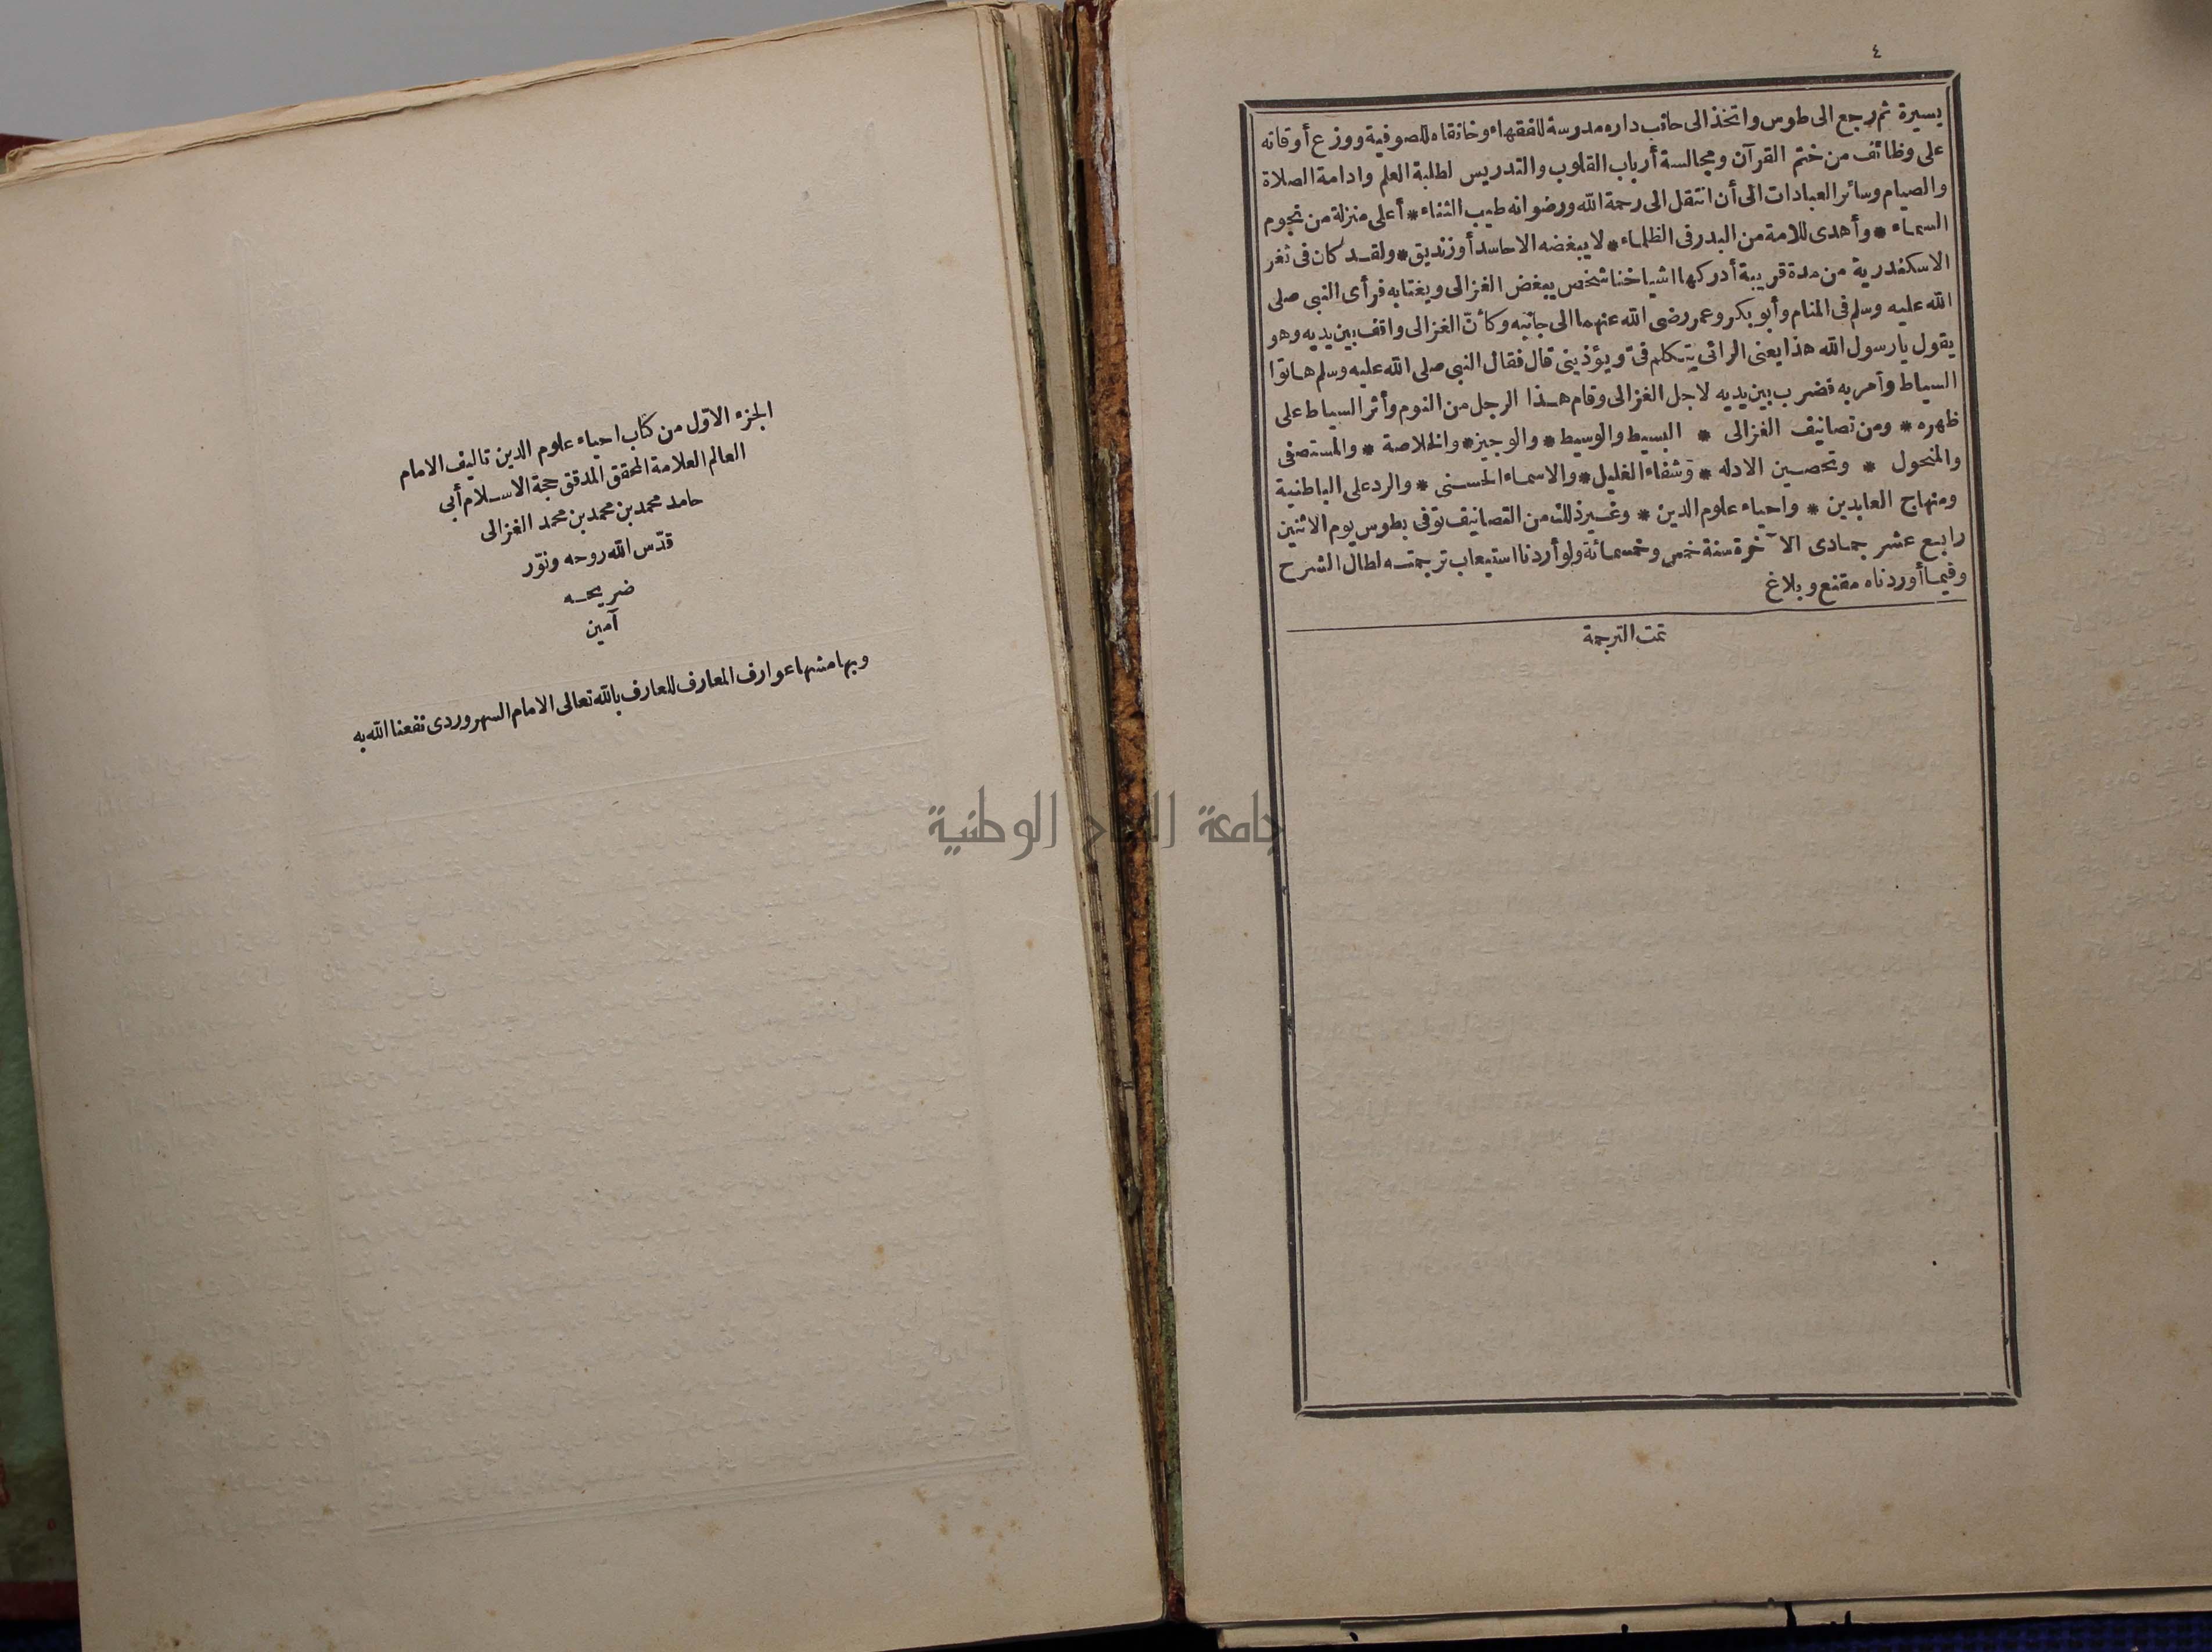 ٤
يسيرة ثم رجع الى طوس واتخذ الى جانب داره مدرسة للفقهاء وخانقاه للصوفية ووزع أوقاته
على وظائف من ختم القرآن ومجالسة أرباب القلوب والتدريس لطلبة العلم وادامة الصلاة
والصيام وسائر العبادات الى أن انتقل الى رحمة الله ورضوانه طيب الثناء * أعلى منزلة من نجوم
السماء * وأهدى للامة من البدر فى الظلماء * لا يبغضه الا حاسد أو زنديق * ولقد كان فى ثغر
الاسكندرية من مدة قريبة أدركها اشياخنا شخص يبغض الغزالى ويغتابه فرأى النبى صلى
الله عليه وسلم فى المنام وأبو بكر وعمر رضى الله عنهما الى جانبه وكأنّ الغزالى واقف بين يديه وهو
يقول يا رسول الله هذا يعنى الرائى يتكلم فىّ ويؤذينى قال فقال النبى صلى الله عليه وسلم هاتوا
السياط وأمر به فضرب بين يديه لاجل الغزالى وقام هذا الرجل من النوم وأثر السياط على
ظهره * ومن تصانيف الغزالى * البسيط والوسيط * والوجيز * والخلاصة * والمستصفى
والمنحول * وتحصين الادلة * وشفاء الغليل * والاسماء الحسنى * والرد على الباطنية
ومنهاج العابدين * واحياء علوم الدين * وغير ذلك من التصانيف توفى بطوس يوم الاثنين
رابع عشر جمادى الآخرة سنة خمس وخمسمائة ولو أردنا استيعاب ترجمته لطال الشرح
وفيما أوردناه مقنع وبلاغ
تمت الترجمة
الجزء الاوّل من كتاب احياء علوم الدين تاليف الامام
العالم العلامة المحقق المدقق حجة الاسلام أبى
حامد محمد بن محمد بن محمد الغزالى
قدّس الله روحه ونوّر
ضريحه
آمين
وبهامشها عوارف المعارف للعارف بالله تعالى الامام السهروردى نفعنا الله به
جامعة النجاح الوطنية